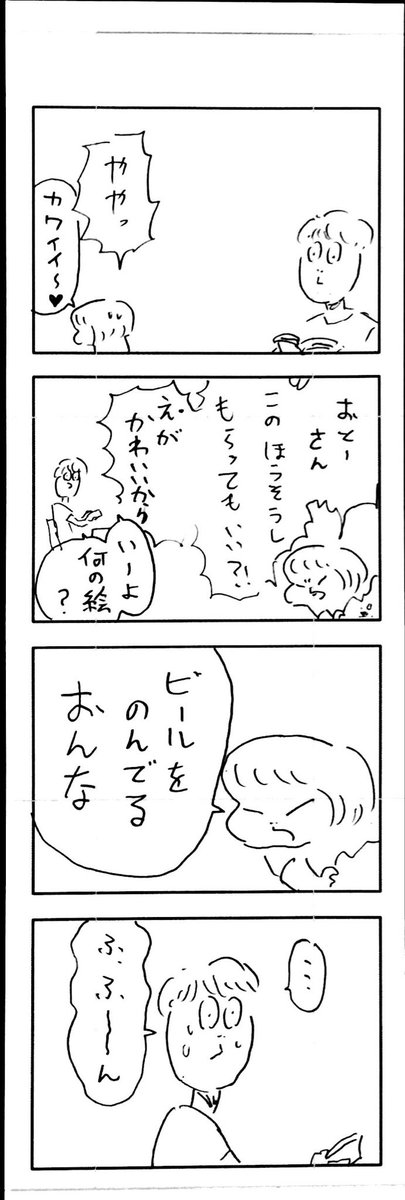 ややっ
カワイイ～♥
おとー
さん
このほうそうし
もらってもいい?!
えが
かわいいから
いーよ
何の絵
?
ビールを
のんでる
おんな
……
ふ、ふーーん